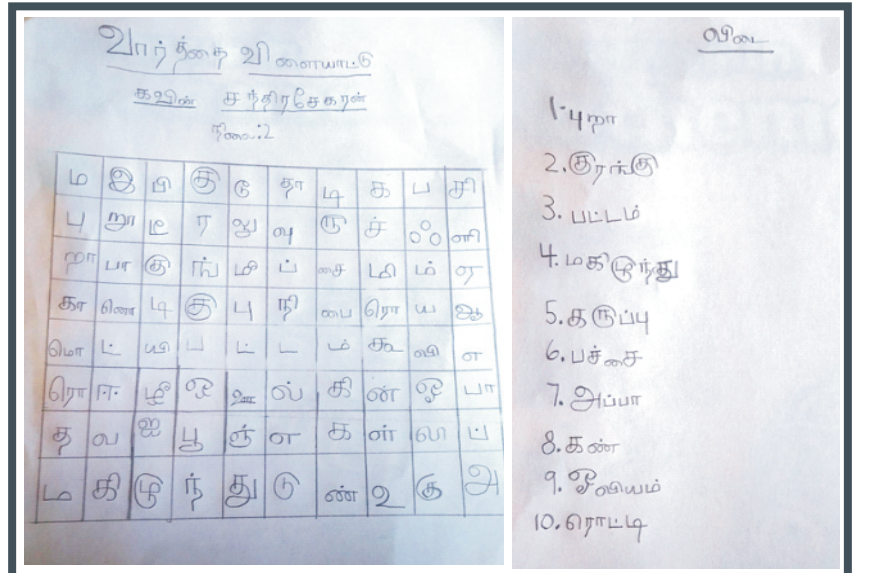 வார்த்தை விளையாட்டு
கவின் சந்திரசேகரன்
நிலை:2
ம இ பி கு டு தா டி க ப சி
பு றா டீ ர லு வு ரு ச் ஃ னி
றா பா கு ங் மீ ப் சை மி ம் ர
கா ணொ டி கு பு நி பை ரொ ய ஆ
மொ ட் யி ப ட் ட ம் கூ வி ன
ரொ ஈ ழீ ஒ ஊ ல் கி ன் ஓ பா
த வ ஐ பூ ஞ் ள க ள் லி ப்
ம கி ழு ந் து டு ண் உ கு அ
விடை
1. புறா
2. குரங்கு
3. பட்டம்
4. மகிழுந்து
5. கருப்பு
6. பச்சை
7. அப்பா
8. கண்
9. ஓவியம்
10. ரொட்டி